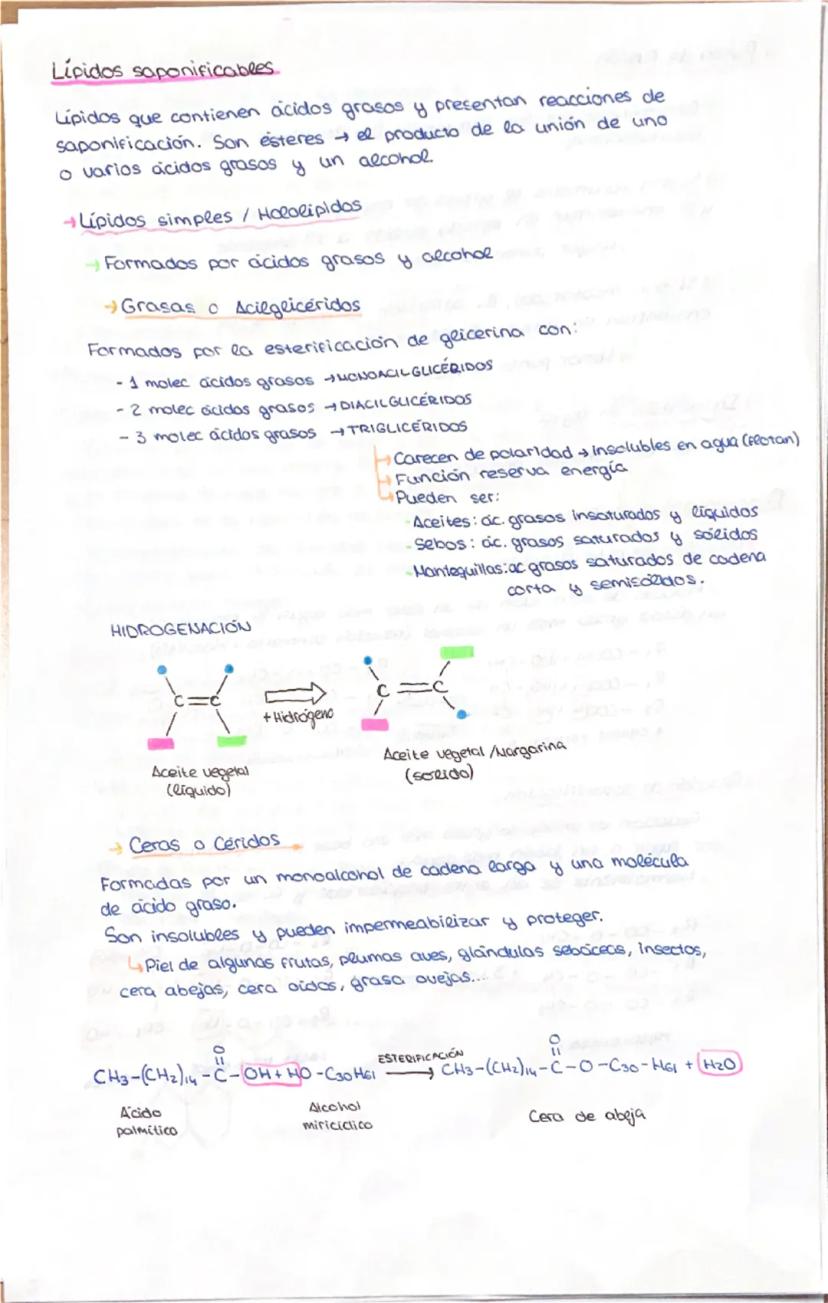 Lípidos saponificables
Lípidos que contienen ácidos grasos y presentan reacciones de
saponificación. Son ésteres → el producto de la unión de uno
o varios ácidos grasos y un alcohol.
→ Lípidos simples / Hololípidos
→ Formados por ácidos grasos y alcohol
→ Grasas o Acilglicéridos
Formados por la esterificación de glicerina con:
- 1 molec ácidos grasos → MONOACILGLICÉRIDOS
- 2 molec ácidos grasos → DIACILGLICÉRIDOS
- 3 molec ácidos grasos → TRIGLICÉRIDOS
Carecen de polaridad → Insolubles en agua (flotan)
Función reserva energía
Pueden ser:
- Aceites: ác. grasos insaturados y líquidos
- Sebos: ác. grasos saturados y sólidos
- Mantequillas: ac grasos saturados de cadena
corta y semisólidos.
HIDROGENACIÓN
C=C
+ Hidrógeno
C=C
Aceite vegetal
(líquido)
Aceite vegetal / Margarina
(sólido)
→ Ceras o Céridos
Formadas por un monoalcohol de cadena larga y una molécula
de ácido graso.
Son insolubles y pueden impermeabilizar y proteger.
↳ Piel de algunas frutas, plumas aves, glándulas sebáceas, insectos,
cera abejas, cera oídos, grasa ovejas...
O
O
CH3-(CH2)14-C-OH + HO-C30H61 ESTERIFICACIÓN → CH3-(CH2)14-C-O-C30-H61 + H2O
Ácido
palmítico
Alcohol
miricíclico
Cera de abeja